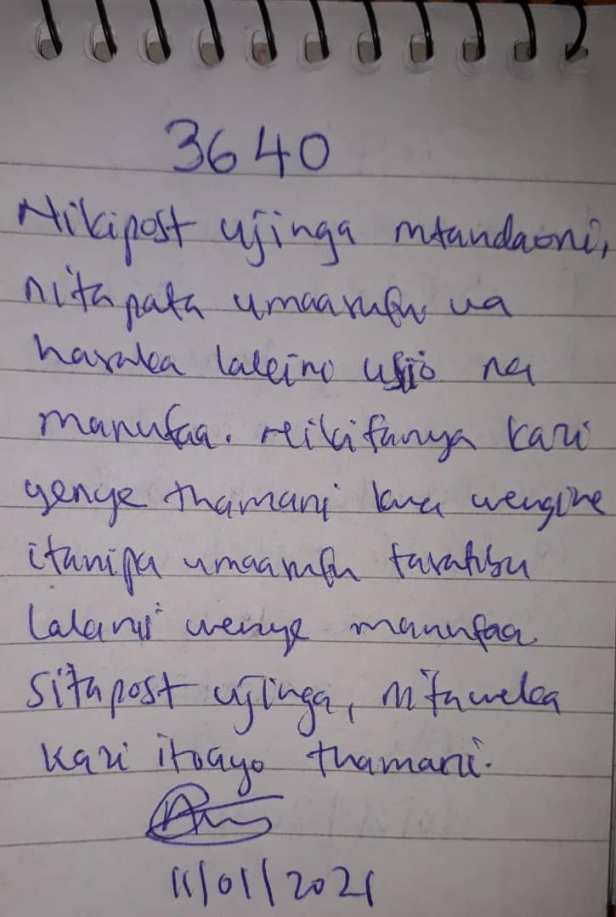 3640
Nikipost ujinga mtandaoni,
nitapata umaarufu wa
haraka lakini usio na
manufaa. Nikifanya kazi
yenye thamani kwa wengine
itanipa umaarufu taratibu
lakini wenye manufaa
Sitapost ujinga, nitaweka
kazi itoayo thamani.
11/01/2021